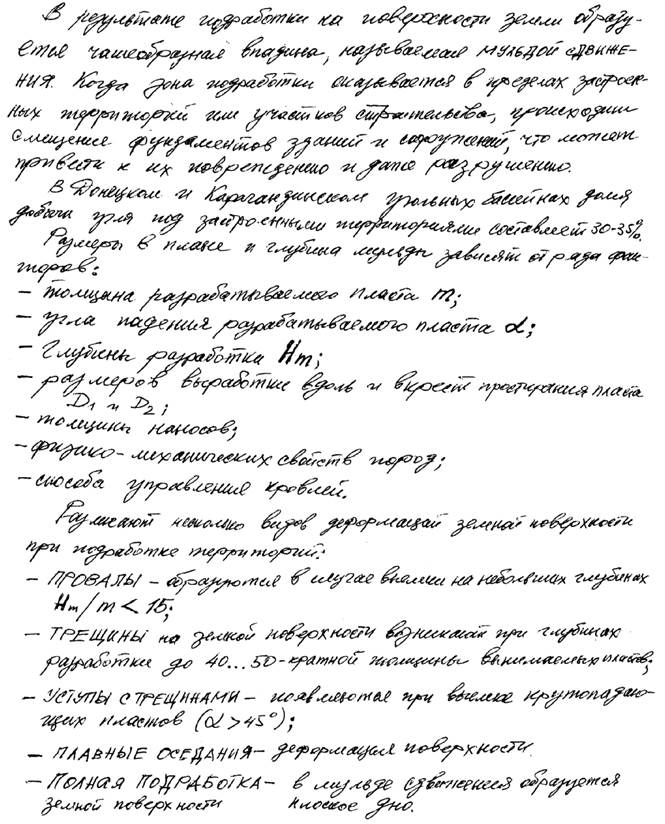 В результате подработки на поверхности земли образу-
ется чашеобразная впадина, называемая МУЛЬДОЙ СДВИЖЕ-
НИЯ. Когда зона подработки оказывается в пределах застроен-
ных территорий или участков строительства, происходит
смещение фундаментов зданий и сооружений, что может
привести к их повреждению и даже разрушению.
В Донецком и Карагандинском угольных бассейнах доля
добычи угля под застроенными территориями составляет 30-35%.
Размеры в плане и глубина мульды зависят от ряда фак-
торов:
- толщина разрабатываемого пласта m;
- угла падения разрабатываемого пласта α;
- глубины разработки Hm;
- размеров выработки вдоль и вкрест простирания пласта
D1 и D2;
- толщины наносов;
- физико-механических свойств пород;
- способа управления кровлей.
Различают несколько видов деформаций земной поверхности
при подработке территорий:
- ПРОВАЛЫ - образуются в случае выемки на небольших глубинах
Hm/m < 15;
- ТРЕЩИНЫ на земной поверхности возникают при глубинах
разработки до 40...50-кратной толщины вынимаемых пластов;
- УСТУПЫ С ТРЕЩИНАМИ - появляются при выемке крутопадаю-
щих пластов (α>45°);
- ПЛАВНЫЕ ОСЕДАНИЯ - деформация поверхности.
- ПОЛНАЯ ПОДРАБОТКА - в мульде сдвижения образуется
земной поверхности плоское дно.